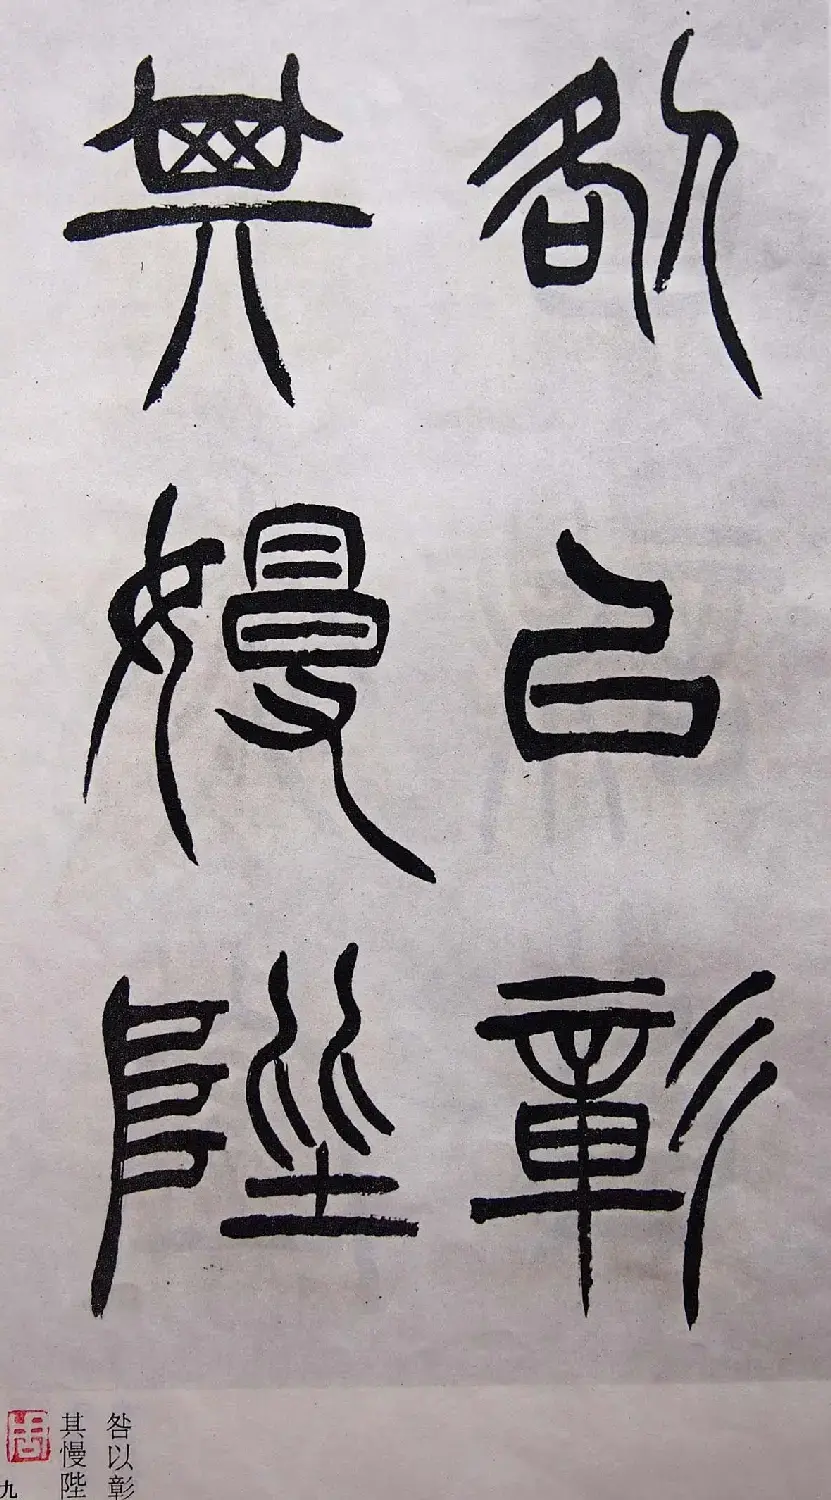 咎以彰
其嫚陛
咎以彰
其慢陛
九